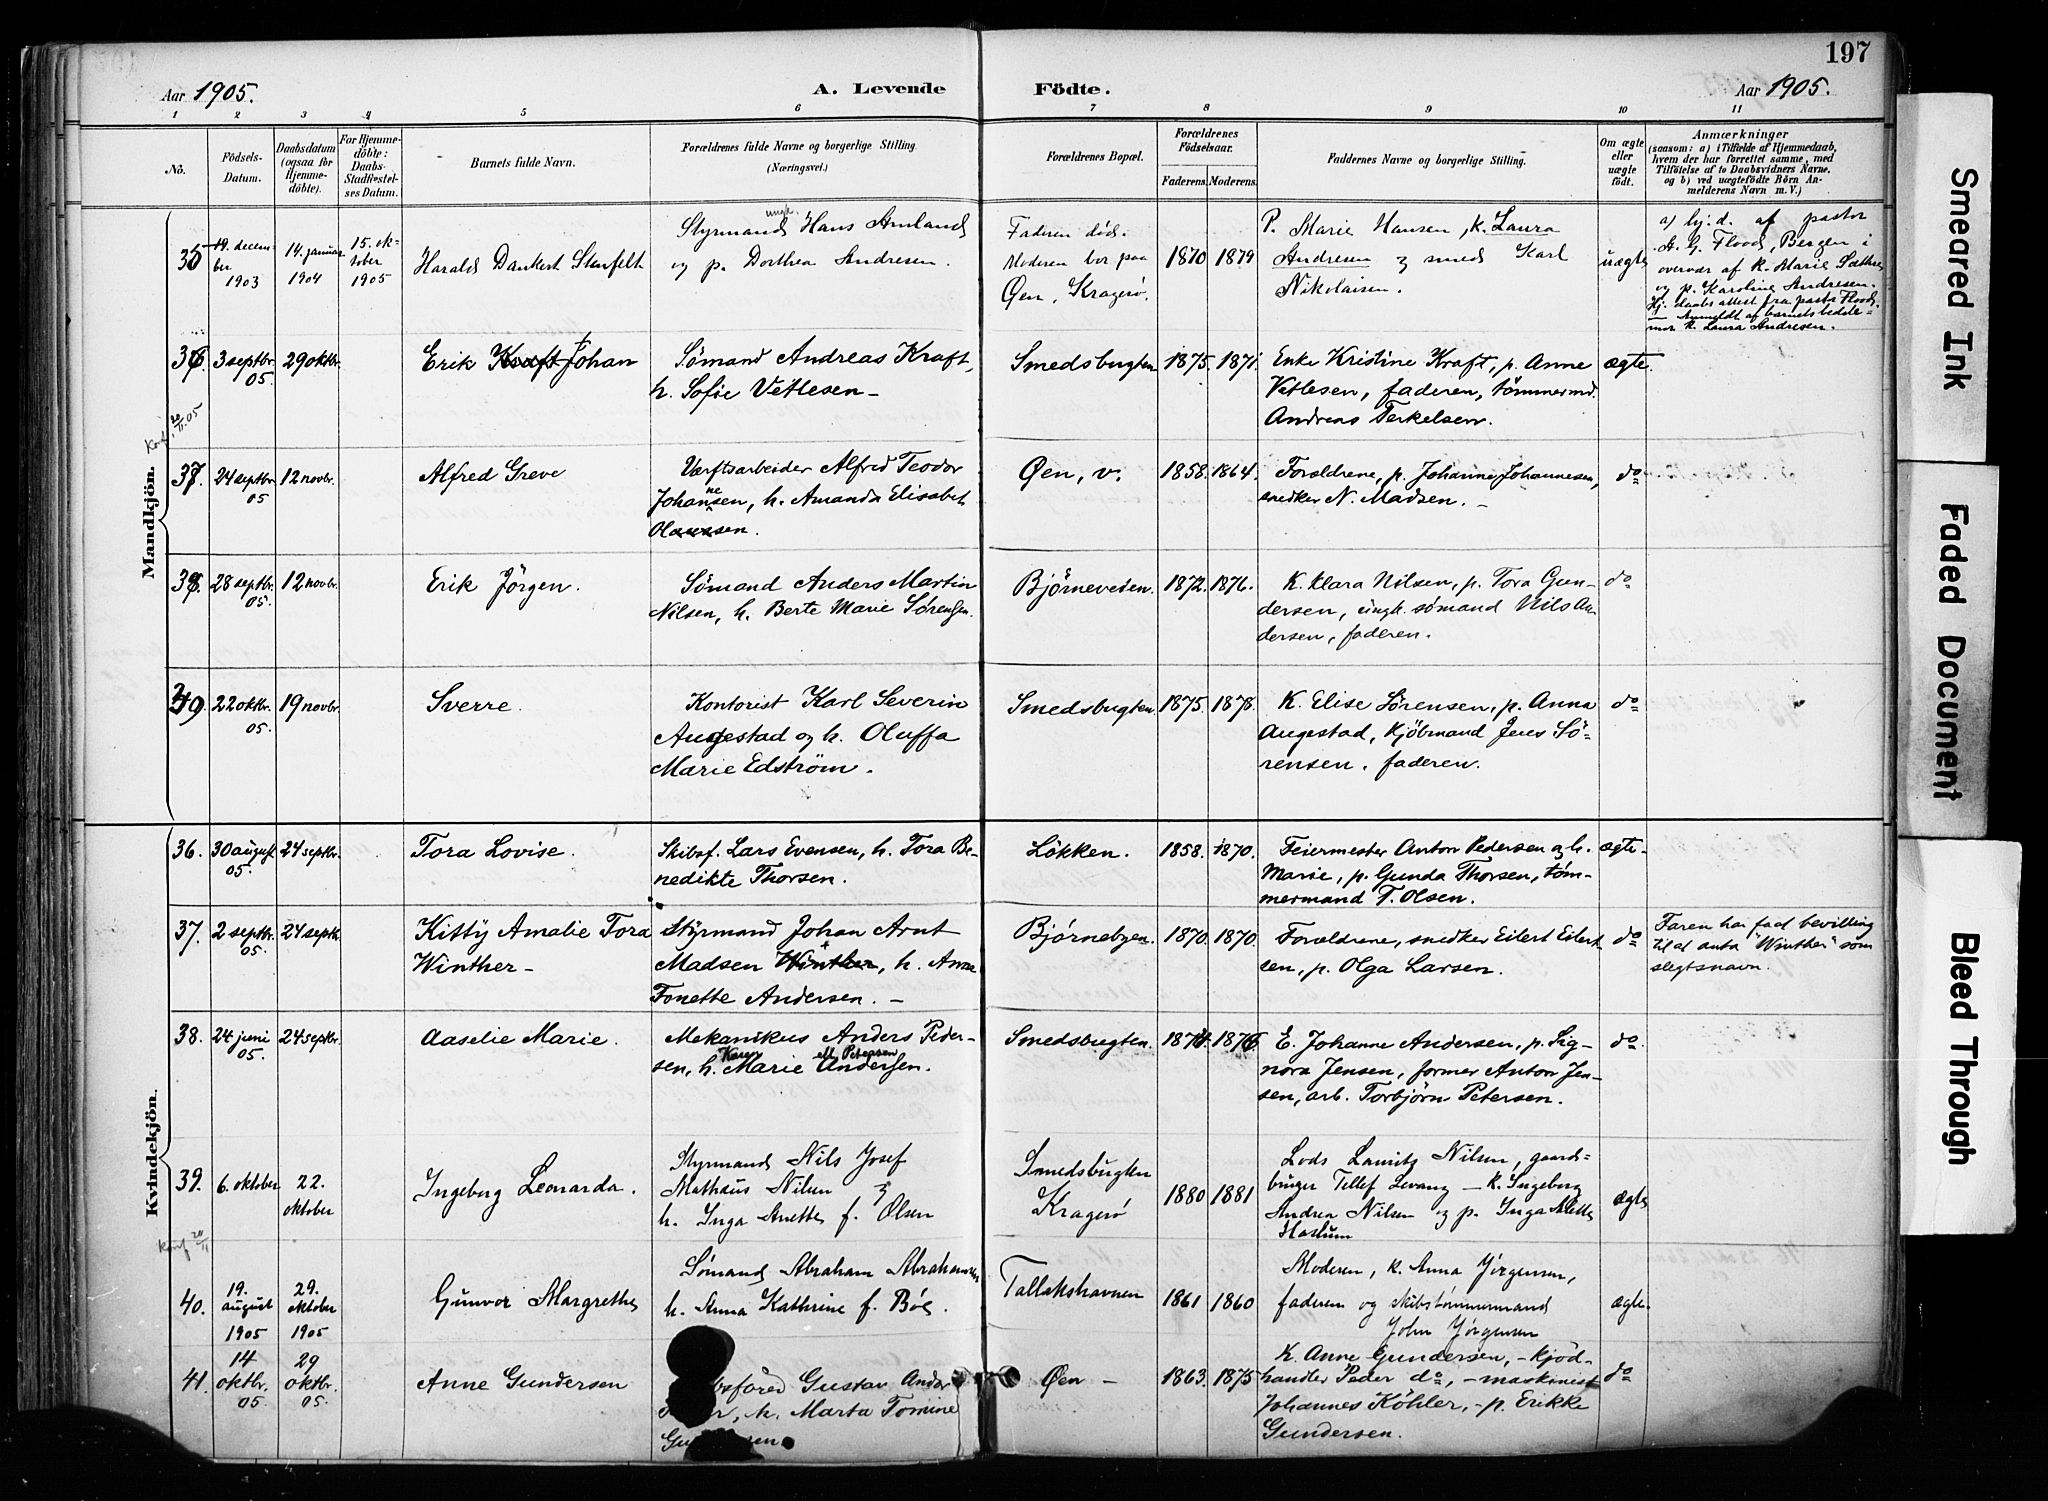 197
Aar 1905.
A. Levende Födte.
Aar 1905.
1 2 3 4 5 6 7 8 9 10 11
No.
Födsels-
Datum.
Daabsdatum
(ogsaa for
Hjemme-
döbte).
For Hjemme-
döbte:
Daabs-
Stadfæstel-
ses Datum.
Barnets fulde Navn.
Forældrenes fulde Navne og borgerlige Stilling.
(Næringsvei.)
Forældrenes Bopæl.
Forældrenes
Födselsaar.
Faderens. Moderens.
Faddernes Navne og borgerlige Stilling.
Om ægte
eller
uægte
födt.
Anmærkninger
(saasom: a) i Tilfælde af Hjemmedaab,
hvem der har forrettet samme, med
Tilföielse af to Daabsvidners Navne.
og b) ved uægtefödte Börn An-
melderens Navn m. V.)
Mandkjön.
35
19. decem-
ber
1903
14. januar
1904
15. ok-
tober
1905
Harald Dankert Stenfelt
Styrmand ungk. Hans Amland
og p. Dorthea Andresen.
Faderen död.
Moderen bor paa
Øen, Kragerø.
1870 1879
P. Marie Hansen, k. Laura
Andresen & smed Karl
Nikolaisen.
uægte
a) hj.d. af pastor
A. G. Flood, Bergen i
overvær af k. Marie Sæthre
og p. Karoline Andresen.
Hj. daabs attest fra pastor Flood.
Anmeldt af barnets bedste-
mor k. Laura Andresen.
36
3 septbr.
05.
29 oktbr.
Erik Kraft Johan
Sømand Andreas Kraft,
h. Sofie Vetlesen -
Smedsbugten 1875. 1871.
Enke Kristine Kraft, p. Anne
Vetlesen, faderen, tømmermd.
Andreas Terkelsen.
ægte.
Konf. 20/11.05
37
24 septbr.
05
12 novbr.
Alfred Greve
Værftsarbeider Alfred Teodor
Johannesen, h. Amanda Elisabet
Olaussen.
Øen, v. 1858. 1864.
Forældrene, p. Johanne Johannesen,
snedker N. Madsen. -
do
38
28 septbr.
05.
12 novbr.
Erik Jörgen.
Sömand Anders Martin
Nilsen, h. Berte Marie Sørensen.
Bjørneveden. 1872. 1876.
K. Klara Nilsen, p. Tora Gun-
dersen, ungk. sømand Nils An-
dersen, faderen.
do
39.
22 oktbr.
05.
19 novbr.
Sverre.
Kontorist Karl Severin
Augestad og h. Oluffa
Marie Edström.
Smedsbugten 1875. 1878.
K. Elise Sørensen, p. Anna
Augestad, Kjöbmand Jens Sö-
rensen, faderen.
do
Kvindekjön.
36.
30 august
05.
24 septbr.
Tora Lovise.
Skibsf. Lars Evensen, h. Tora Be-
nedikte Thorsen.
Lökken. 1858. 1870.
Feiermester Anton Pedersen og h.
Marie, p. Gunda Thorsen, tøm-
mermand T. Olsen.
ægte-
37.
2 septbr.
05.
24 septb.
Kitty Amalie Tora
Winther -
Styrmand Johan Arnt
Madsen Winther, h. Anne
Tonette Andersen. -
Bjørnebyen. 1870. 1870.
Forældrene, snedker Eilert Eilert-
sen, p. Olga Larsen.
do
Faren har faa'd bevilling
til at anta "Winther" som
slegtsnavn.
38.
24 juni
05.
24 septbr.
Aaselie Marie.
Mekanikus Anders Peder-
sen, h. Karen Marie Andersen. ell. Petersen
Smedsbugten. 1874. 1876
E. Johanne Andersen, p. Sig-
nora Jensen, former Anton Jen-
sen, arb. Torbjörn Petersen.
do
39.
6. oktober
22.
oktober
Ingeborg Leonarda.
Styrmand Nils Josef
Mathæus Nilsen &
h. Inga Anette f. Olsen
Smedsbugten
Kragerø
1880 1881
Lods Lauritz Nilsen, gaard-
bruger Tellef Levang - k. Ingeborg
Andrea Nilsen og p. Inga Mette
Haslum
ægte
Konf. 20/11
40.
19.
august
1905
29.
oktober
1905
Gunvor Margrethe
Sömand Abraham Abrahamsen
h. Anna Kathrine f. Böe.
Tallakshavnen 1861 1860
Moderen, k. Anna Jörgensen,
faderen og skibstømmermand
John Jörgensen
ægte.
41.
14
oktbr.
05.
29
oktbr.
05.
Anne Gundersen
Gustav
h. Marta Tomine
Øen - 1863. 1875
K. Anne Gundersen, - kjød-
handler Peder do, - maskinist
Johannes Köhler, - p. Erikke
Gundersen.
do
Smeared Ink
Faded Document
Bleed Through